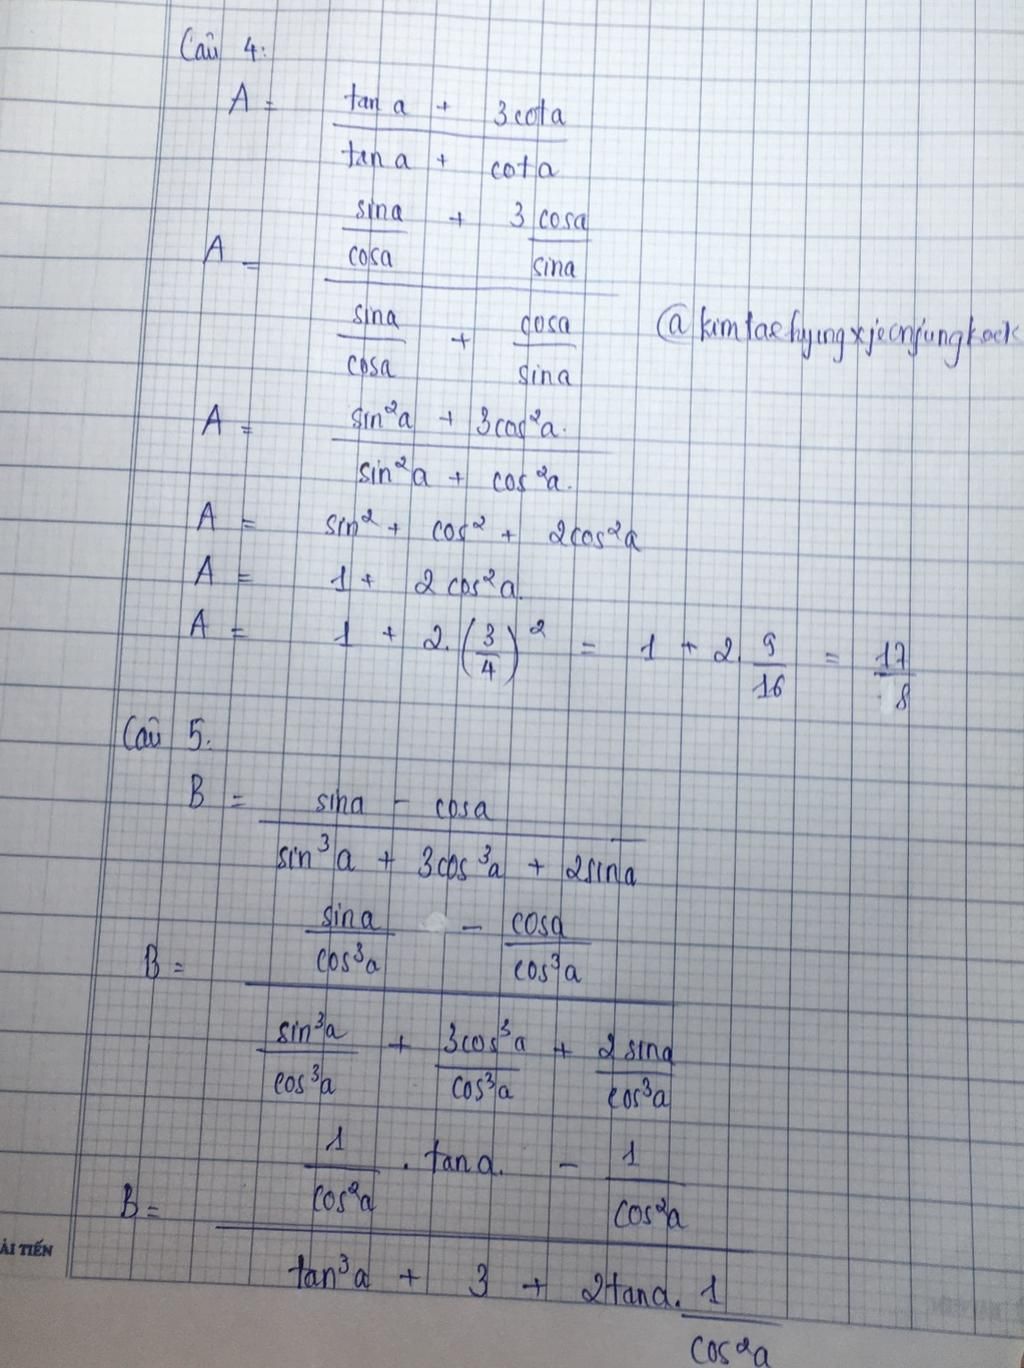 Câu 4:
A = (tan a + 3cot a) / (tan a + cot a)
A = (sina/cosa + 3 cosa/sina) / (sina/cosa + cosa/sina)
@kimtaehyungxjeonjungkook
A = (sin²a + 3cos²a.) / (sin²a + cos²a.)
A = sin² + cos² + 2cos²a
A = 1 + 2cos²a.
A = 1 + 2.(3/4)² = 1 + 2. 9/16 = 17/8
Câu 5:
B = (sina - cosa) / (sin³a + 3cos³a + 2sina)
B = (sina/cos³a - cosa/cos³a) / (sin³a/cos³a + 3cos³a/cos³a + 2sina/cos³a)
B = (1/cos²a . tana. - 1/cos²a) / (tan³a + 3 + 2tana. 1/cos²a)
ẢI TIẾN